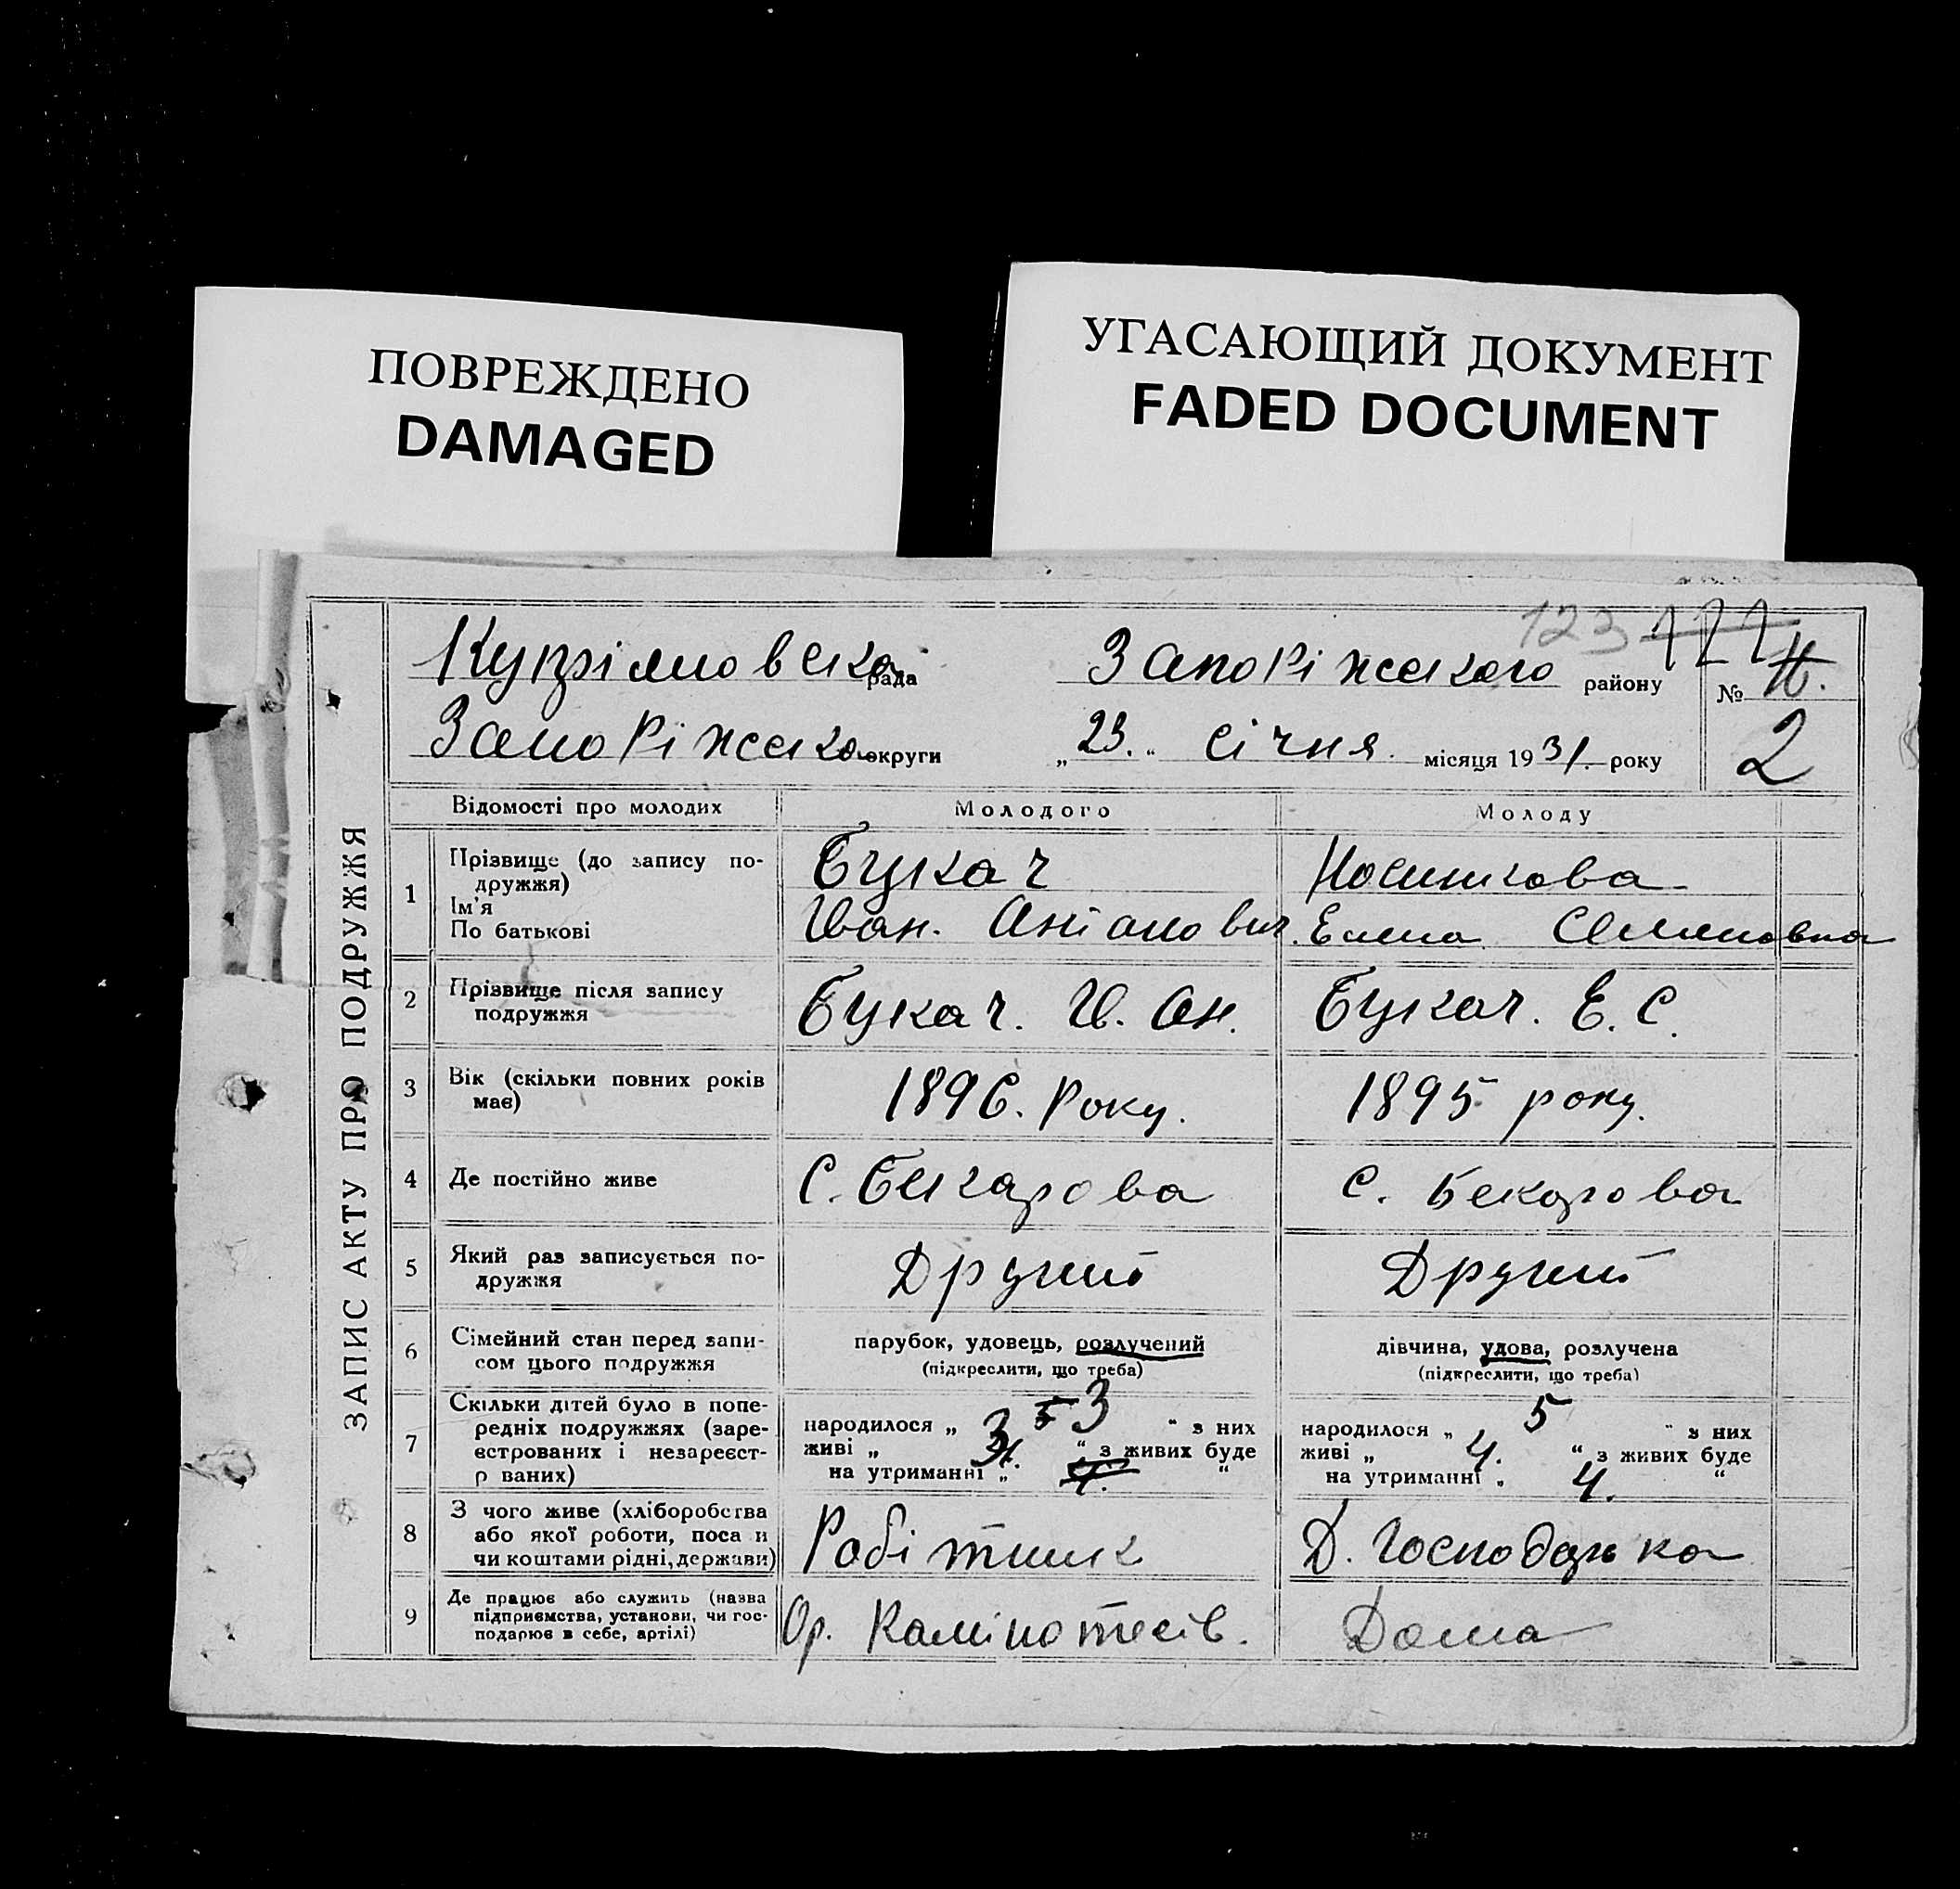 ПОВРЕЖДЕНО
DAMAGED
УГАСАЮЩИЙ ДОКУМЕНТ
FADED DOCUMENT
ЗАПИС АКТУ ПРО ПОДРУЖЖЯ
123 121
рада Запоріжского району № 11.
Запоріжско округи „ 23. " січня. місяця 1931. року 2
Відомості про молодих Молодого Молоду
1 Прізвище (до запису по- Букач Носикова
дружжя)
Ім'я Іван. Антанович. Елена Семеновна
По батькові
2 Прізвище після запису Букач. И. Ан. Букач. Е. С.
подружжя
3 Вік (скільки повних років 1896. Року. 1895 року.
має)
4 Де постійно живе С. Бекарова с. Бекарова
5 Який раз записується по- Другий Другий
дружжя
6 Сімейний стан перед запи- парубок, удовець, розлучений дівчина, удова, розлучена
сом цього подружжя (підкреслити, що треба) (підкреслити, що треба)
7 Скільки дітей було в попе-
редніх подружжях (заре- народилося „ 3 5 3 " з них народилося „ 5 " з них
естрованих і незареєст- живі „ " з живих буде живі „ 4. " з живих буде
р ваних) на утриманні „ 4. " на утриманні „ 4. "
8 З чого живе (хліборобства Робітник Д. Господарька
або якої роботи, поса и
чи коштами рідні, держави)
9 Де працює або служить (назва Ор. Камінотесів. Дома
підприємства, установи, чи гос-
подарює в себе, артілі)